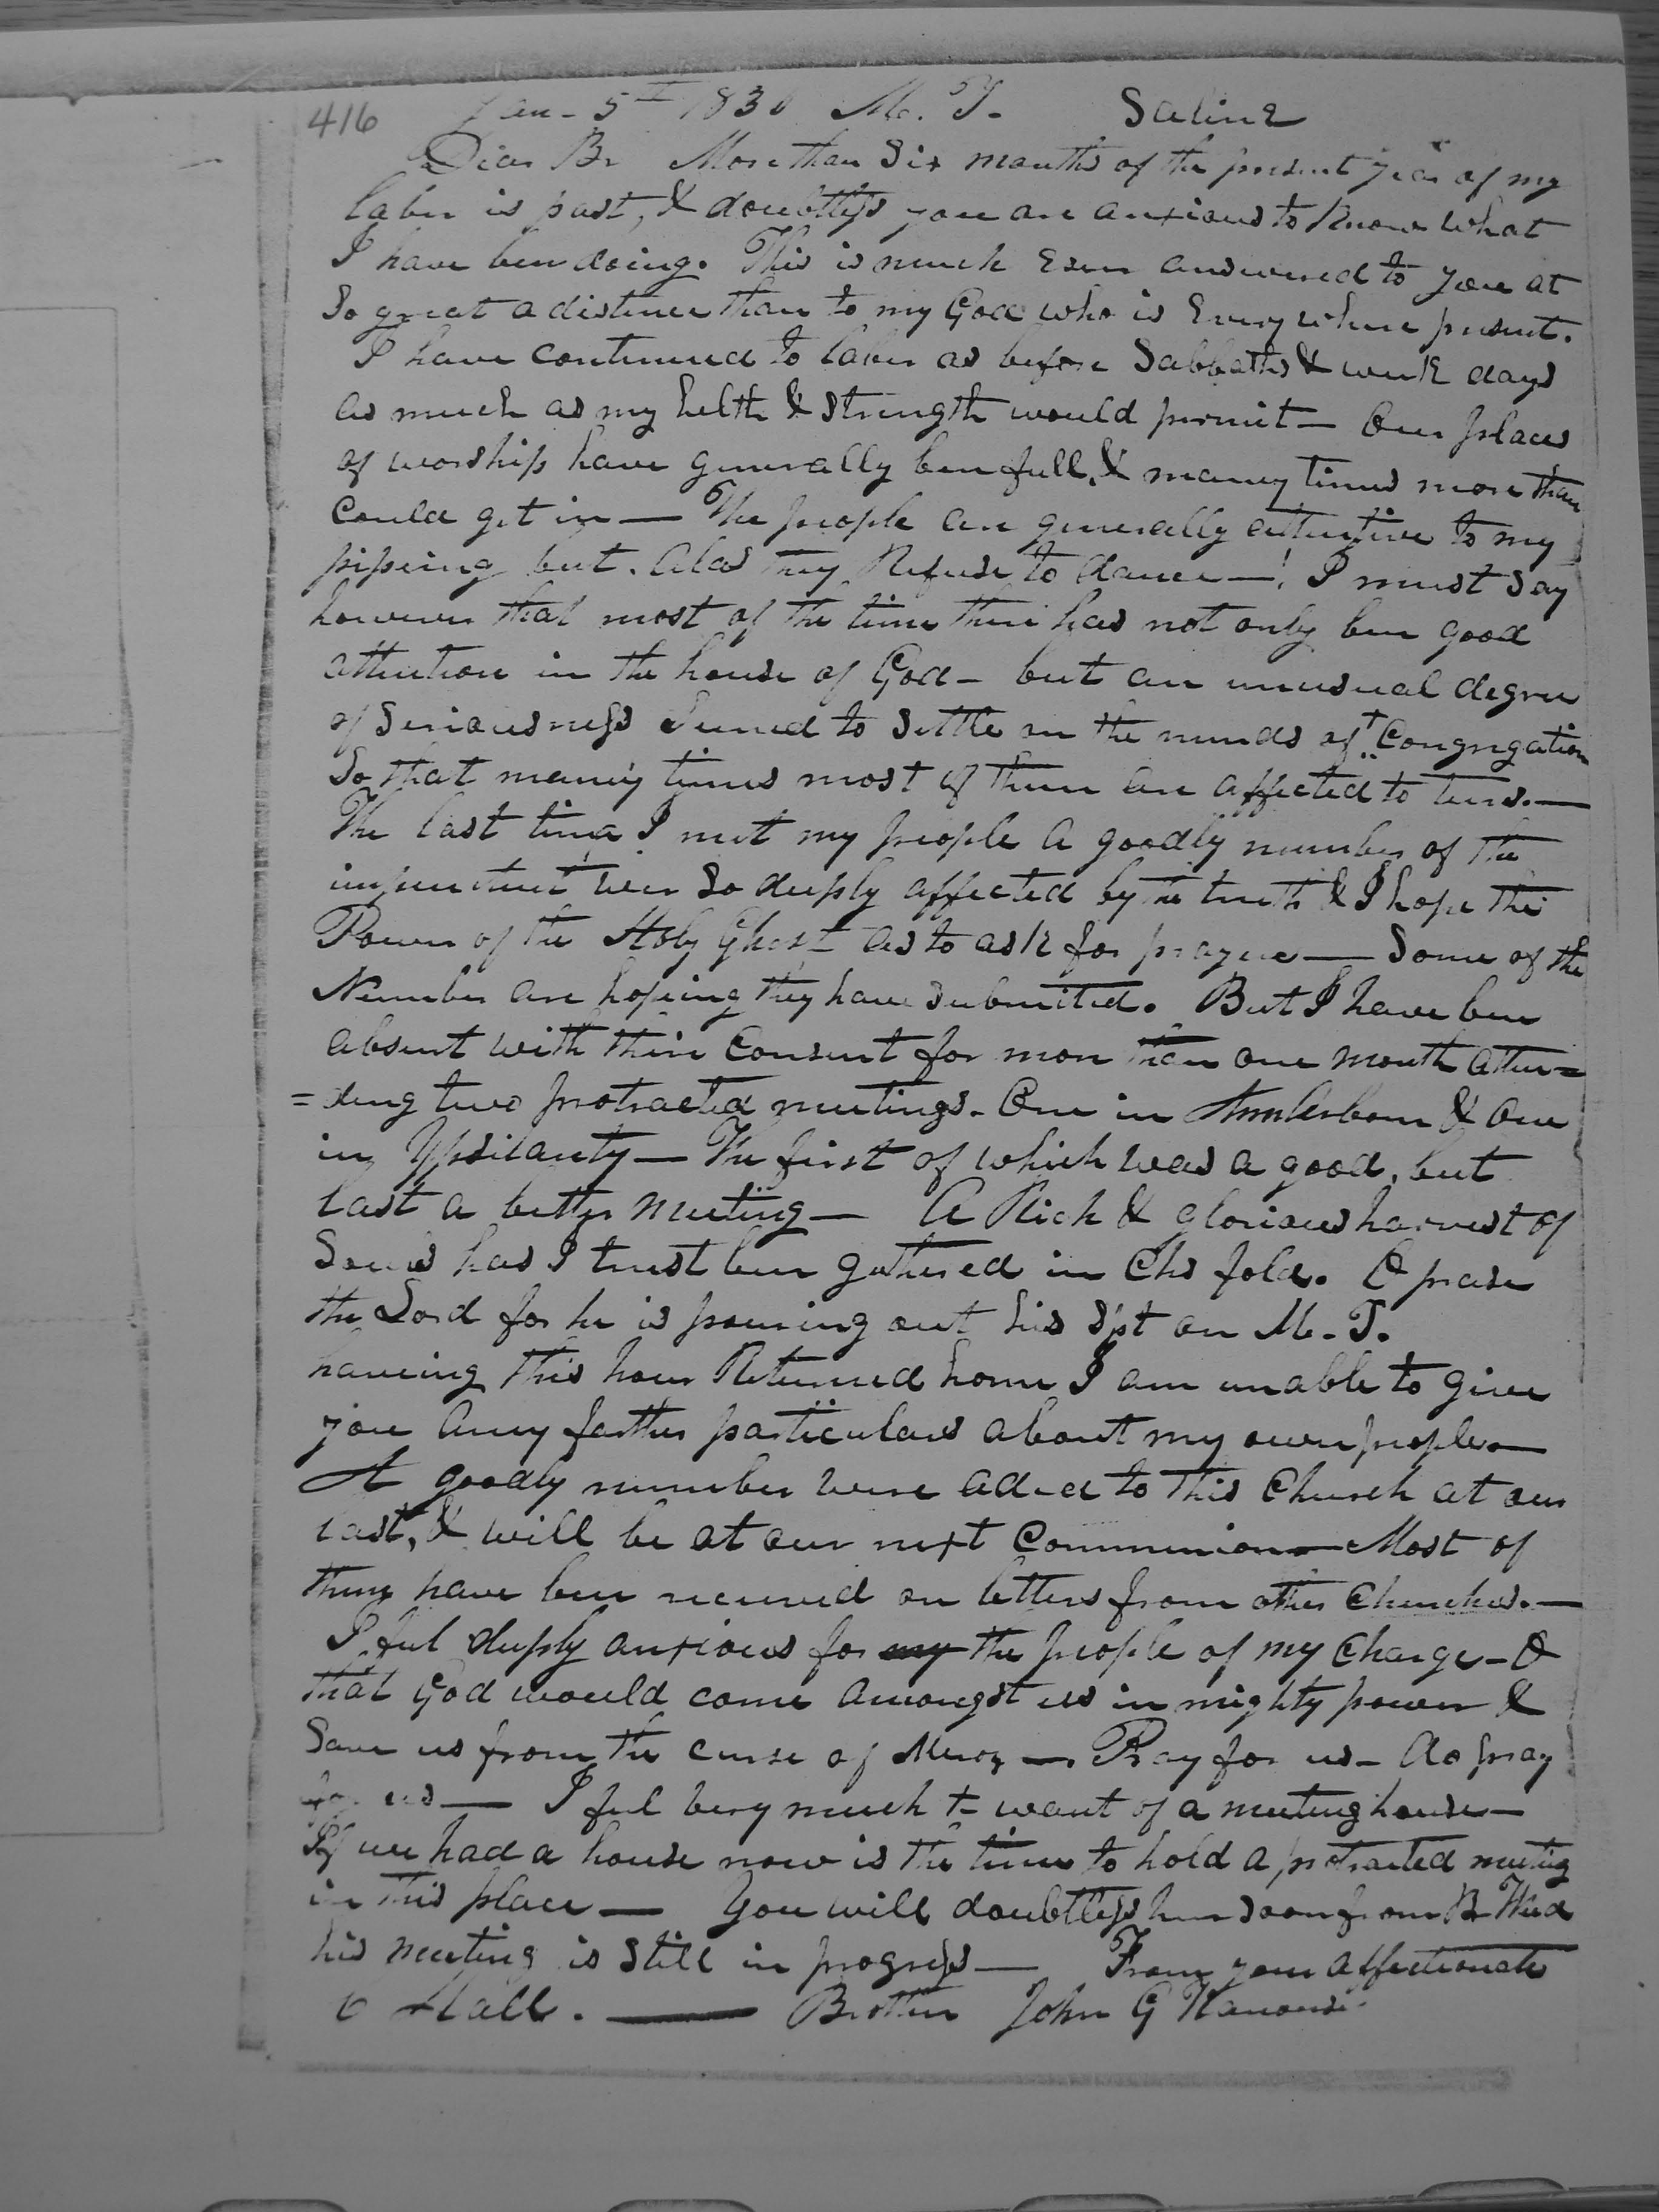 416 Jan - 5th 1836 M. T. Saline
Dear Br More than Six months of the present year of my
labor is past, & doubtless you are anxious to know what
I have ben doing. This is much esier answered to you at
So great a distence than to my God who is Every where present.
I have continued to labor as before Sabbaths & week days
as much as my helth & Strength would permit — Our places
of worship have generally ben full, & many times more than
could get in — The people are generally attentive to my
pipeing but. Alas they Refuse to dance —! I must Say
however that most of the time there has not only ben good
attention in the house of God - but an unusual degree
of Seriousness Seemed to Settle on the minds of t. Congregation
So that many times most of them are affected to tears. —
The last time I met my people a goodly number of the
impenitent were So deeply affected by the truth & I hope the
Power of the Holy Ghost as to ask for prayer — Some of the
Number are hopeing they have Submitted. But I have ben
absent with their consent for more than one month atten=
=ding two protracted meetings. One in AnnArbour & One
in Ypsilanty — The first of which was a good, but
last a better meeting — A Rich & glorious harvest of
Souls has I trust ben gathered in Chs fold. O prase
the Lord for he is pouring out his Spt on M. T.
haveing this hour Returned home I am unable to give
you any farther particulars about my own people —
A goodly number were added to this Church at our
last, & will be at our next Communion — Most of
them have ben received on letters from other Churches. —
I feel deeply anxious for my the people of my Charge - O
that God would come amongst us in mighty power &
Save us from the curse of Meroz — Pray for us - do pray
for us — I feel very much t- want of a meeting house —
If we had a house now is the time to hold a protracted meeting
in this place — You will doubtless hear soon from Br Weed
his meeting is Still in progress — From your affectionate
Hall. — Brother John G Kanouse